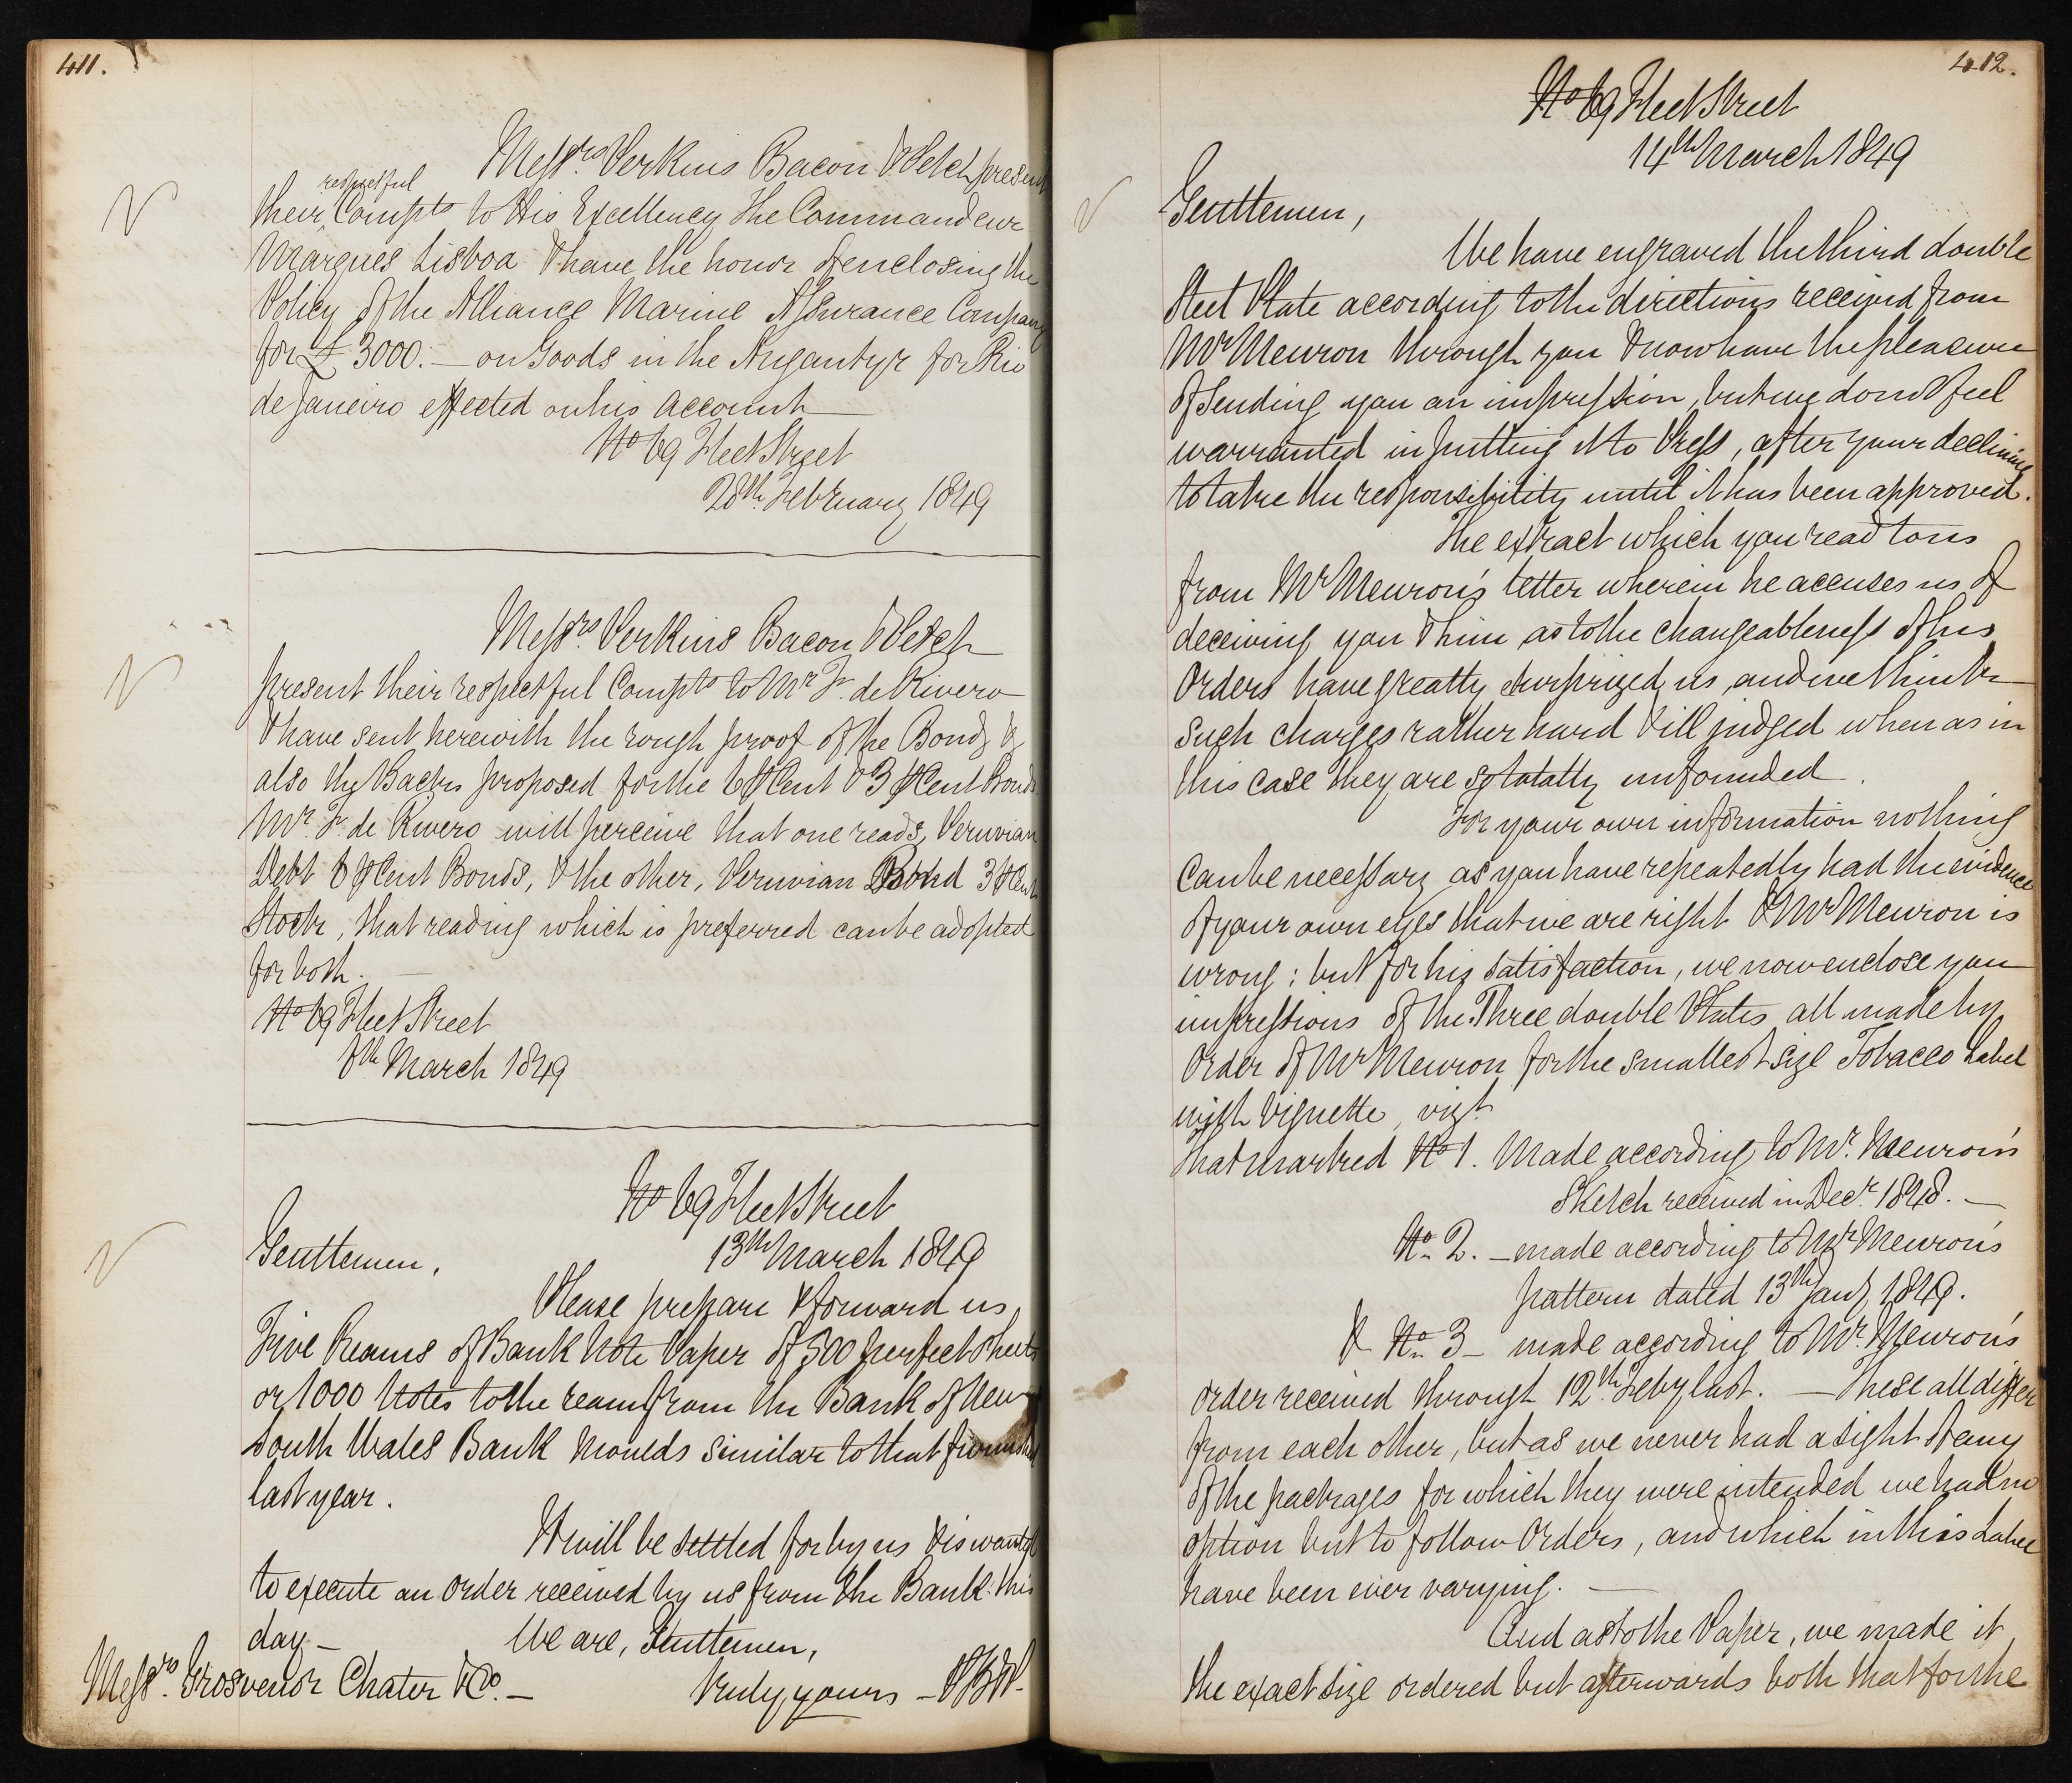 411.
Messrs. Perkins Bacon & Petch present
respectful
their Compts to His Excellency The Commandeur
Marques Lisboa & have the honor of enclosing the
Policy of the Alliance Marine Assurance Company
for £3000.— on Goods in the Argantyr for Rio
de Janeiro effected on his account
No 69 Fleet Street
28th February 1849
Messrs. Perkins Bacon & Petch
present their respectful Compts to Mr. Fr. de Rivero
& have sent herewith the rough proof of the Bond, &
also the Backs proposed for the 6 ⅌ Cent & 3 ⅌ Cent Bonds
Mr. Fr. de Rivero will perceive that one reads, Peruvian
Debt 6 ⅌ Cent Bonds, & the other, Peruvian Bond 3 ⅌ Cent
Stock, that reading which is preferred can be adopted
for both.—
No 69 Fleet Street
8th March 1849
No 69 Fleet Street
13th March 1849
Gentlemen,
Please prepare & forward us
Five Reams of Bank Note Paper of 500 perfect sheets
or 1000 Notes to the ream from the Bank of New
South Wales Bank Moulds similar to that furnished
last year.
It will be settled for by us & is wanted
to execute an order received by us from The Bank this
day—
We are, Gentlemen,
Messrs. Grosvenor Chater & Co.—
Truly yours — PB&P.
412.
No 69 Fleet Street
14th March 1849
Gentlemen,
We have engraved the third double
Steel Plate according to the directions received from
Mr Meuron through you & now have the pleasure
of sending you an impression, but we do not feel
warranted in putting it to Press, after your declining
to take the responsibility until it has been approved.
The extract which you read to us
from Mr Meuron's letter wherein he accuses us of
deceiving you & him as to the changeableness of his
Orders have greatly surprized us, and we think
such charges rather hard & ill judged when as in
this case they are so totally unfounded.
For your own information nothing
can be necessary as you have repeatedly had the evidence
of your own eyes that we are right & Mr Meuron is
wrong: but for his satisfaction, we now enclose you
impressions of the Three double Plates all made by
Order of Mr Meuron for the smallest size Tobacco Label
with Vignette, vizt.
That marked No 1. Made according to Mr. Meuron's
Sketch received in Decr. 1848.—
No 2.—made according to Mr Meuron's
pattern dated 13th Jany 1849.
& No 3— made according to Mr. Meuron's
order received through 12th Feby last.—These all differ
from each other, but as we never had a sight of any
of the packages for which they were intended we had no
option but to follow Orders, and which in this Label
have been ever varying.—
And as to the Paper, we made it
the exact size ordered but afterwards both that for the